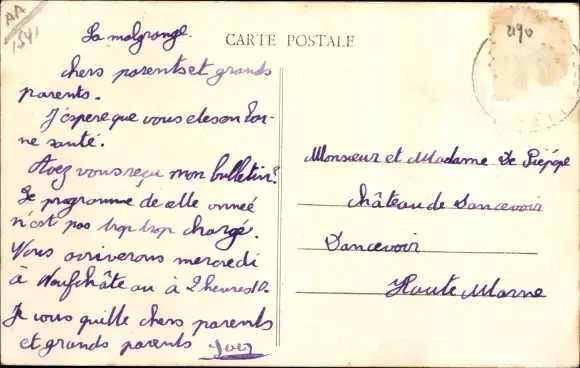 AA
1541
La malgrange.
CARTE POSTALE
490
chers parents et grands
parents.
J'éspère que vous etes en bon-
ne santé.
Avez vous reçu mon bulletin?
Le programme de cette anneé
n'est pas trop trop chargé.
Nous arriverons mercredi
à Neufchâteau à 2 heures 10.
Je vous quitte chers parents
et grands parents
Monsieur et Madame De Piépape
Château de Dancevoir
Dancevoir
Haute Marne